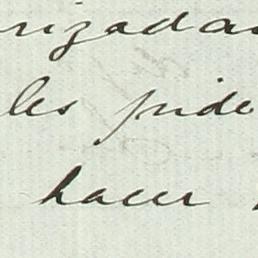 rizada
les pide
hacer